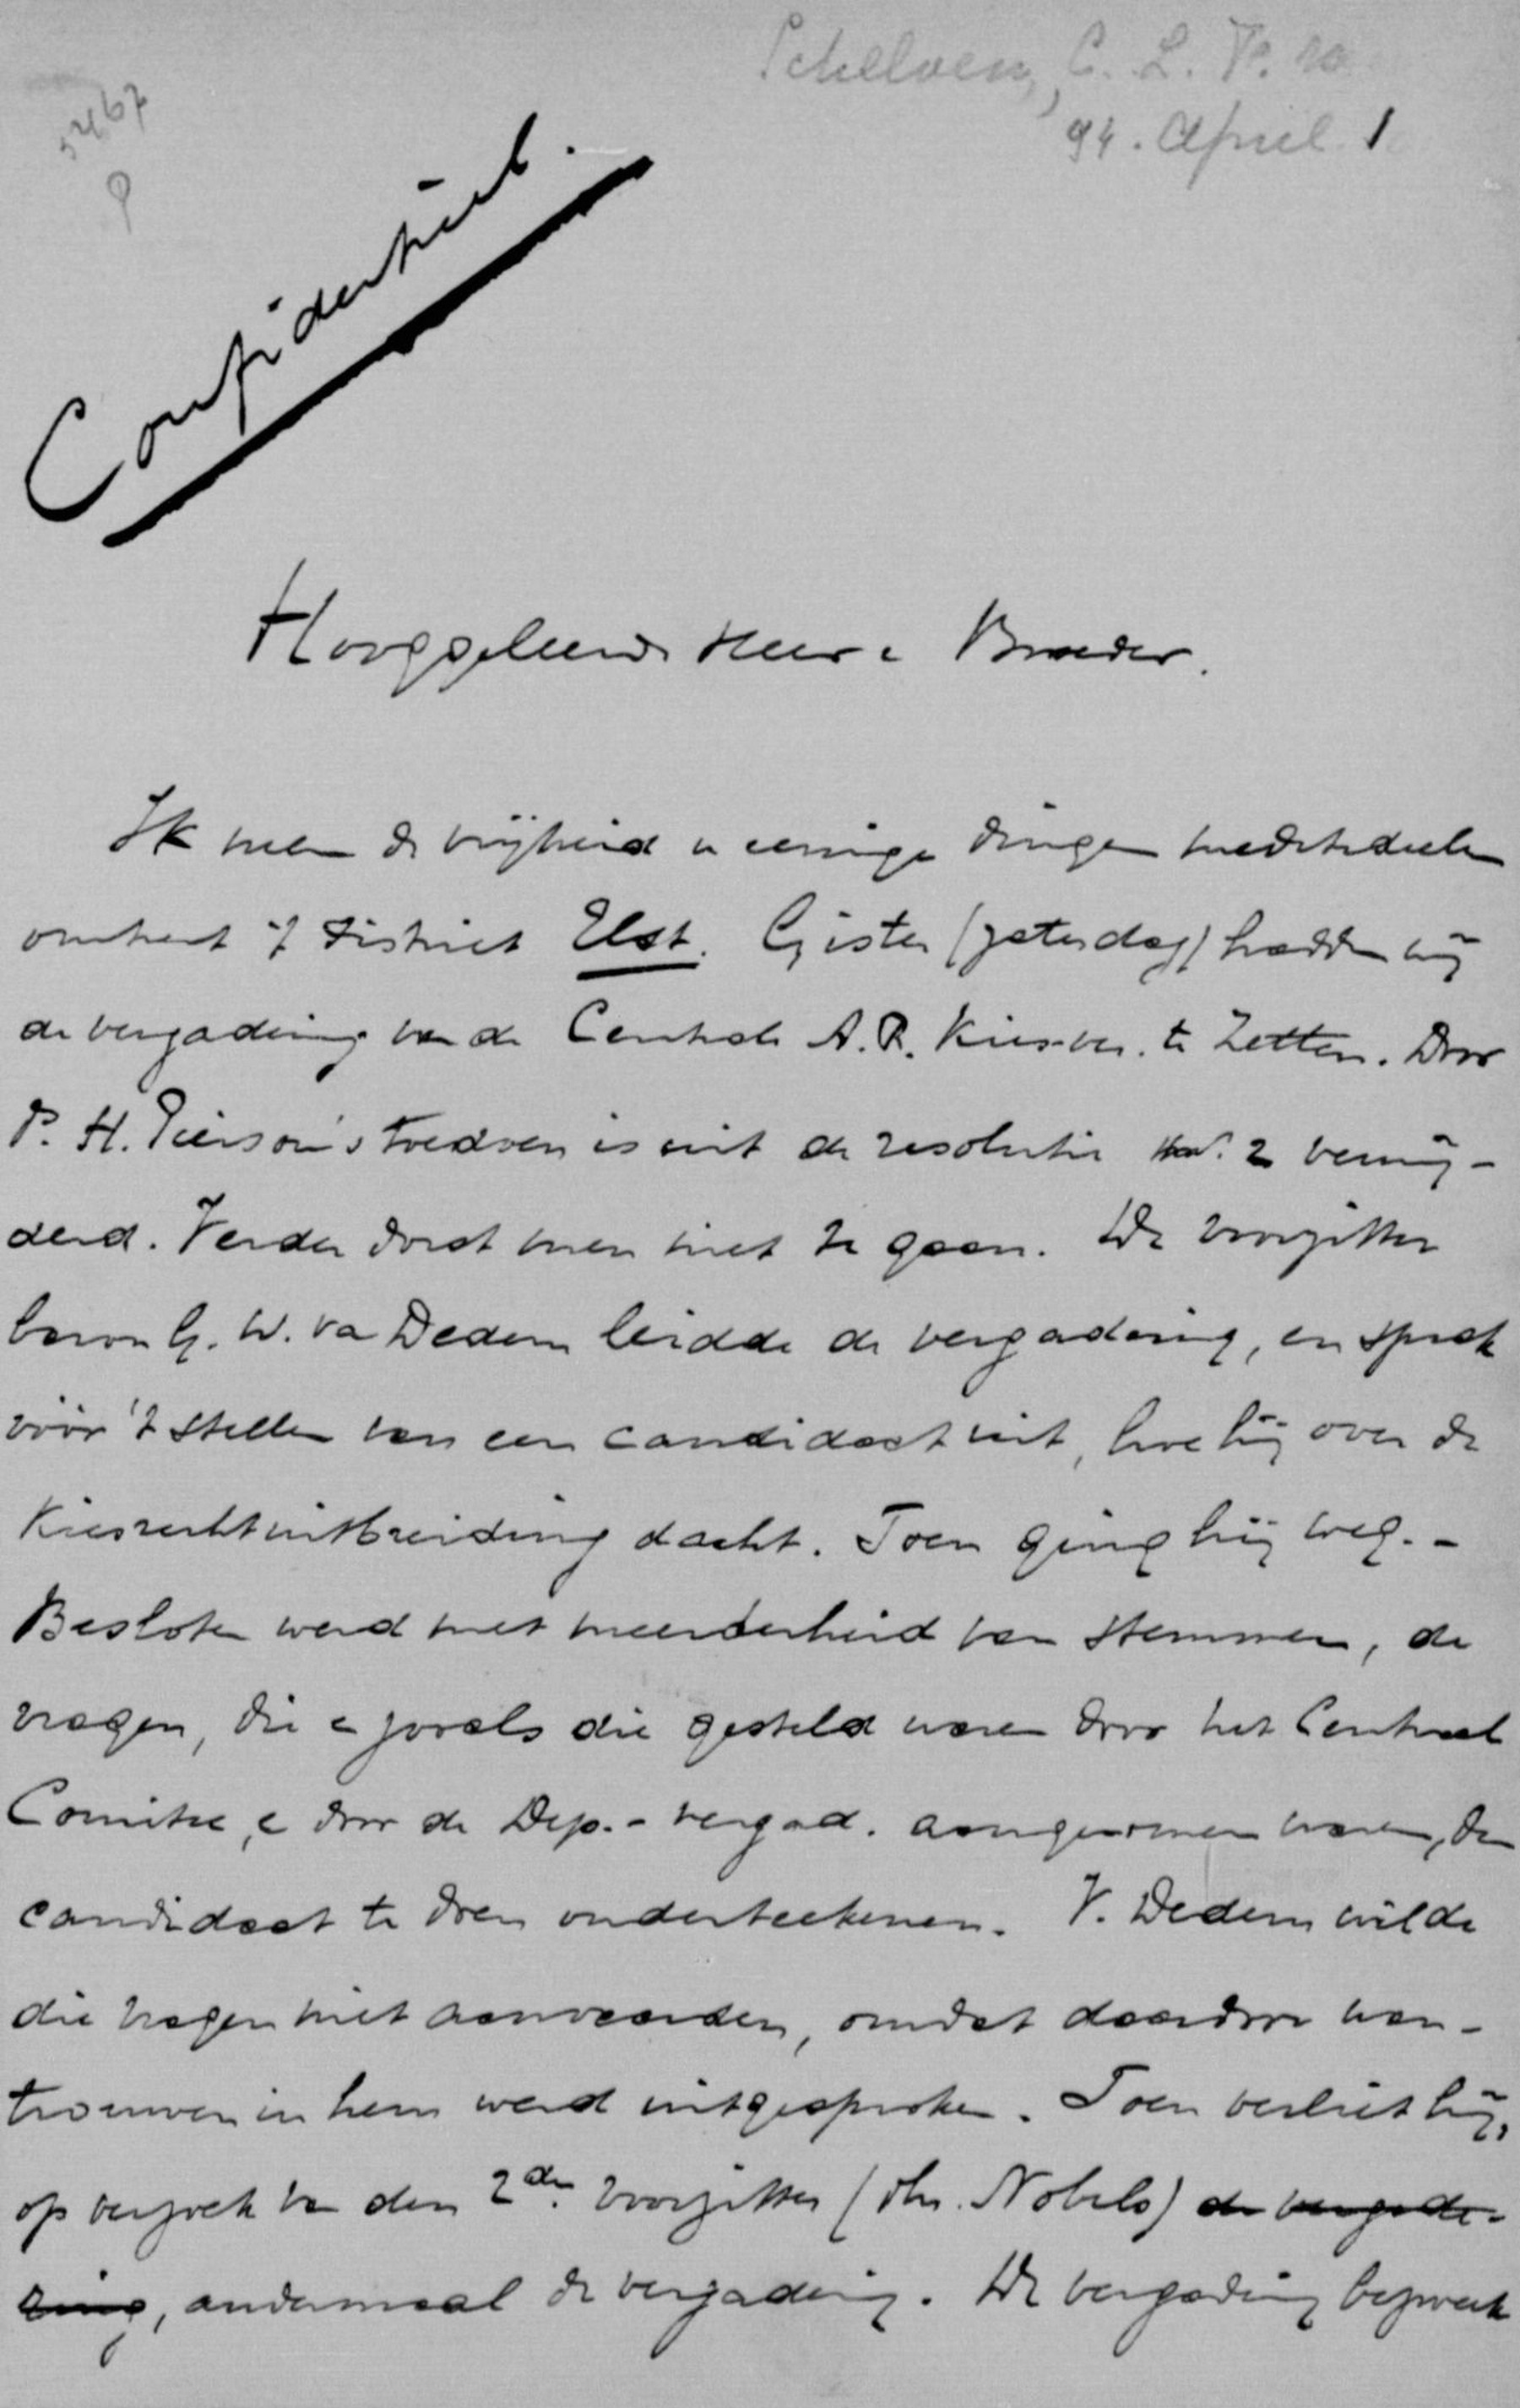 Schelven, C. L. F. v.
94. April 1
5467
Confidentiëel.
Hooggeleerde Heer e Broeder.
Ik neem de vrijheid u eenige dingen mede te deelen
omtrent 't district Elst. Gister (zaterdag) hadden wij
de vergadering van de Centrale A.R. Kiesver. te Zetten. Door
P. H. Pierson's toedoen is uit de resolutie 2 verwij-
derd. Verder dorst men niet te gaan. De voorzitter
baron G. W. va Dedem leidde de vergadering, en sprak
vóór 't stellen van een candidaat uit, hoe hij over de
Kiesrechtuitbreiding dacht. Toen ging hij weg. -
Besloten werd met meerderheid van stemmen, de
vragen, die e zooals die gesteld waren door het Centraal
Comitee, e door de Dep.- vergad. aangenomen waren, den
candidaat te doen onderteekenen. V. Dedem wilde
die vragen niet aanvaarden, omdat daardoor wan-
trouwen in hem werd uitgesproken. Toen verliet hij,
op verzoek van den 2den voorzitter (dhr. Nobels) de vergade-
ring, andermaal de vergadering. De vergadering bezweek